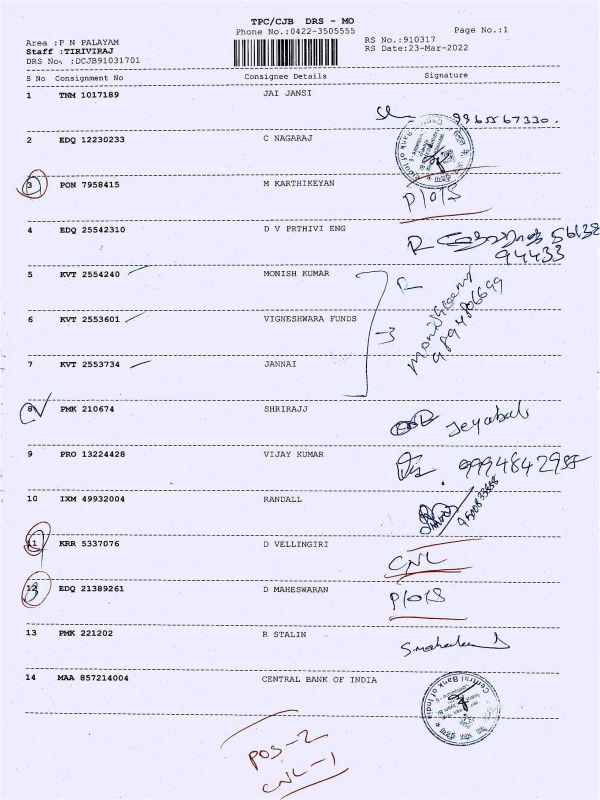 TPC/CJB DRS - MO
Phone No.:0422-3505555
Page No.:1
Area :P N PALAYAM
RS No.:910317
Staff :TIRIVIRAJ
RS Date:23-Mar-2022
DRS No. :DCJB91031701
S No Consignment No Consignee Details Signature
1 TNM 1017189 JAI JANSI
9965567330.
2 EDQ 12230233 C NAGARAJ
3 PON 7958415 M KARTHIKEYAN
P/O/S
4 EDQ 25542310 D V PRTHIVI ENG
R 56638
94433
5 KVT 2554240 MONISH KUMAR
6 KVT 2553601 VIGNESHWARA FUNDS
-3
9894806699
7 KVT 2553734 JANNAI
8 PMK 210674 SHRIRAJJ
Jeyabal
9 PRO 13224428 VIJAY KUMAR
10 IXM 49932004 RANDALL
11 KRR 5337076 D VELLINGIRI
CNL
12 EDQ 21389261 D MAHESWARAN
P/O/S
13 PMK 221202 R STALIN
14 MAA 857214004 CENTRAL BANK OF INDIA
Central Bank of India
POS-2
CNL-1